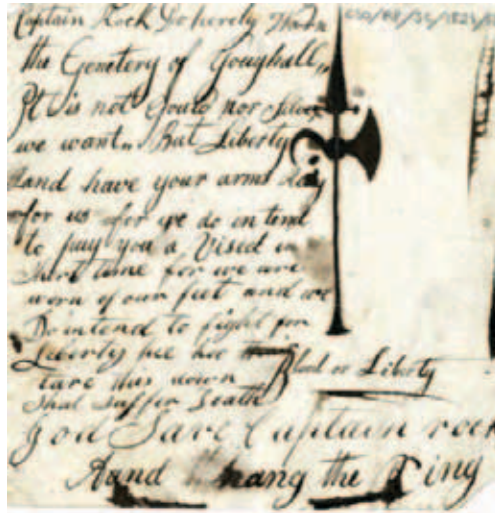 Captain Rock Do hereby Warn
the Gentery of Youghall,,
It is not Gould nor Silver
we want,, But Liberty
Aand have your arms
for us for we do intend
to pay you a Visid in
Short time for we are
worn of our feet and we
Do intend to fight for
Liberty hee hoe
tare this down Blud or Liberty
Shal Suffer Death
God Save Captain rock
Aand hang the King